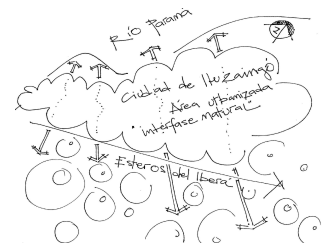 Río Paraná
N
Ciudad de Ituzaingó
Área urbanizada
"interfase natural"
Esteros del Iberá